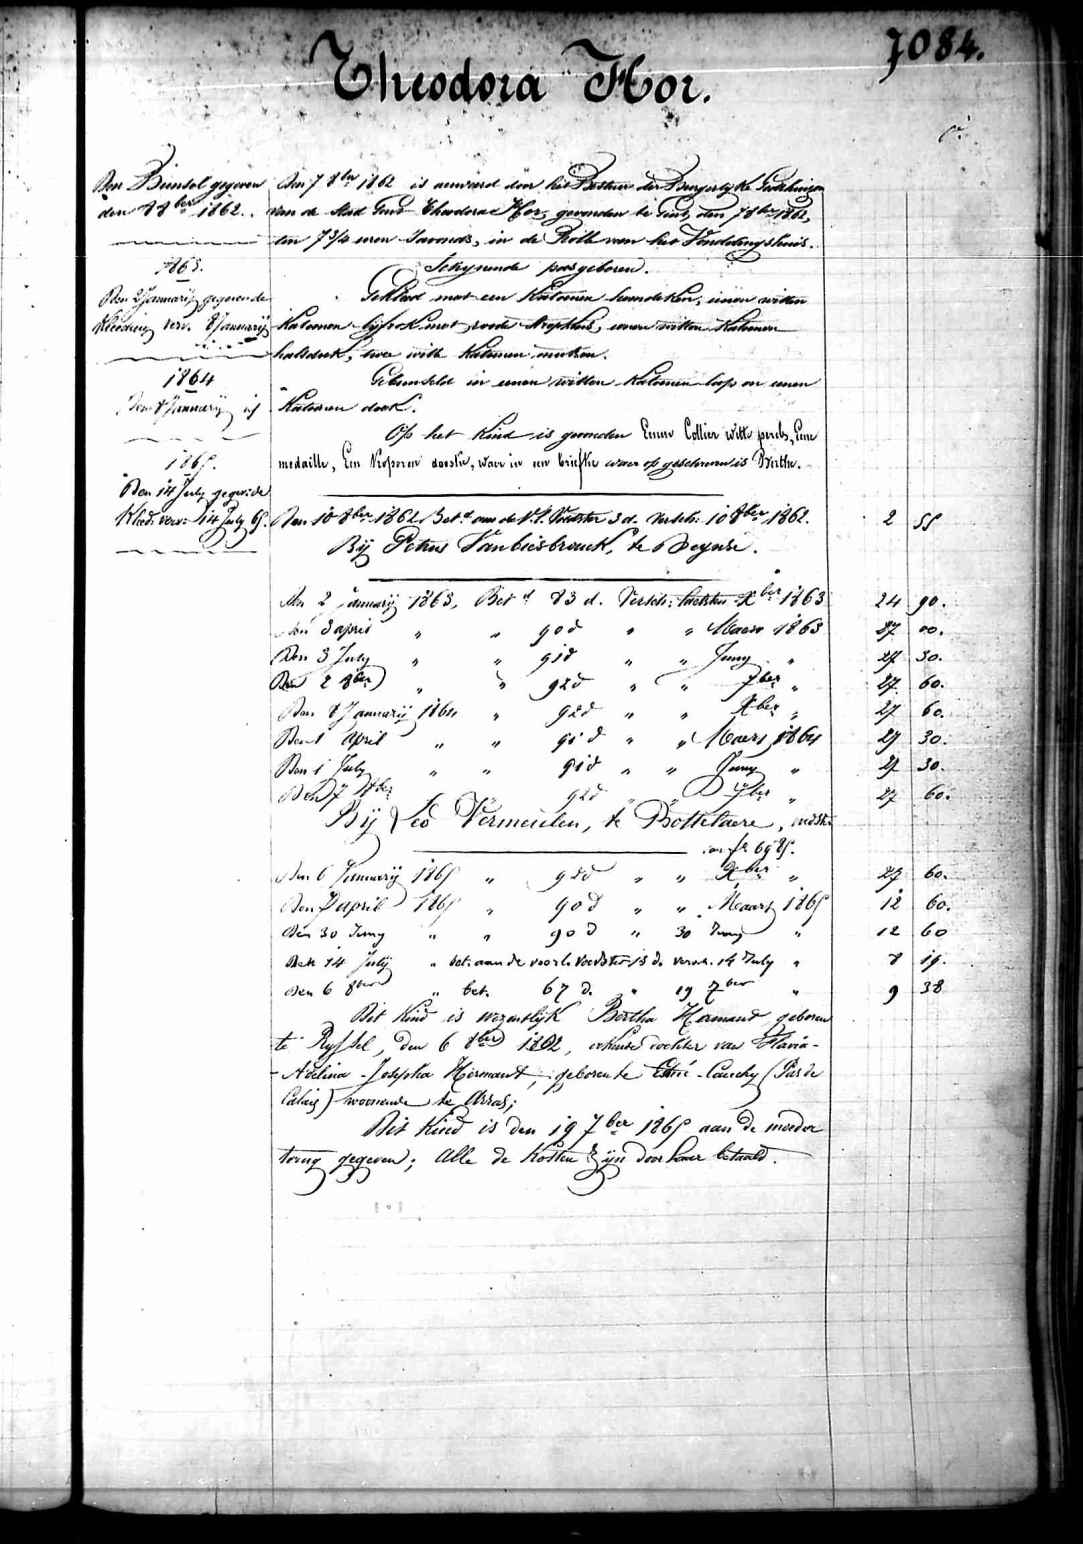 7084.
Theodora Hor.
Den Bunsel gegeven
den 8 8ber 1862.
1863.
Den 2 January gegeven de
Kleeding verv. 8 January
1864
Den 8 January id
1865.
Den 14 July gegev: de
Kleed: verv: 14 July 65.
Den 7 8ber 1862 is aenveird door het Bestuer der Burgerlyke Godshuizen
van de Stad Gend Theodora Hor, gevonden te Gent, den 7 8ber 1862,
ten 7 3/4 uren s'avonds, in de Rolle van het Vondelingshuis.
Schynende pasgeboren.
Gekleed met een Katoenen hemdeken, eenen witten
Katoenen lyfrok met roode strepkens, eenen witten Katoenen
halsdoek, twee witte Katoenen mutsen.
Gebunseld in eenen witten Katoenen lap en eenen
Katoenen doek.
Op het Kind is gevonden Eenen Collier witte perels, Eene
medaille, Een doosken, waer in een briefke waer op geschreven is Berthe.
Den 10 8ber 1862 Betd aen de V.t. Voedster 3 d. Versch: 10 8ber 1862. 2 55
Bij Petrus Vanbiesbrouck, te Deynse.
Den 2 january 1863, Betd 83 d. Versch: laetsten Xber 1863 24 90.
Den 3 april " " 90 d " " Maert 1863 27 00.
Den 3 July " " 91 d " " Juny " 27 30.
Den 2 8ber " " 92 d " " 7ber " 27 60.
Den 8 January 1864 " 92 d " " Xber " 27 60.
Den 1 April " " 91 d " " Maert 1864 27 30.
Den 1 July " " 91 d " " Juny " 27 30.
Den 7 8ber " 92 d " " 7ber " 27 60.
Bij Leo Vermeulen, te Bottelaere,
Den 6 January 1865 " 92 d " " Xber " 27 60.
Den 7 april 1865 " 90 d " " Maart 1865 12 60.
Den 30 Juny " " 90 d " 30 Juny " 12 60
Den 14 July " bet. aan de voorl. Voedster 13 d. versch. 14 July " 8 19.
Den 6 8ber " bet. 67 d. " 19 7ber " 9 38
Dit Kind is wezentlyk Bertha Hermant geboren
te Ryssel, den 6 8ber 1862, erkende dochter van Flavia-
Adelina-Josepha Hermant, geboren te Cauchy (Pas de
Calais) woonende te Arras;
Dit Kind is den 19 7ber 1865 aan de moeder
terug gegeven; Alle de Kosten zyn door haer betaeld.